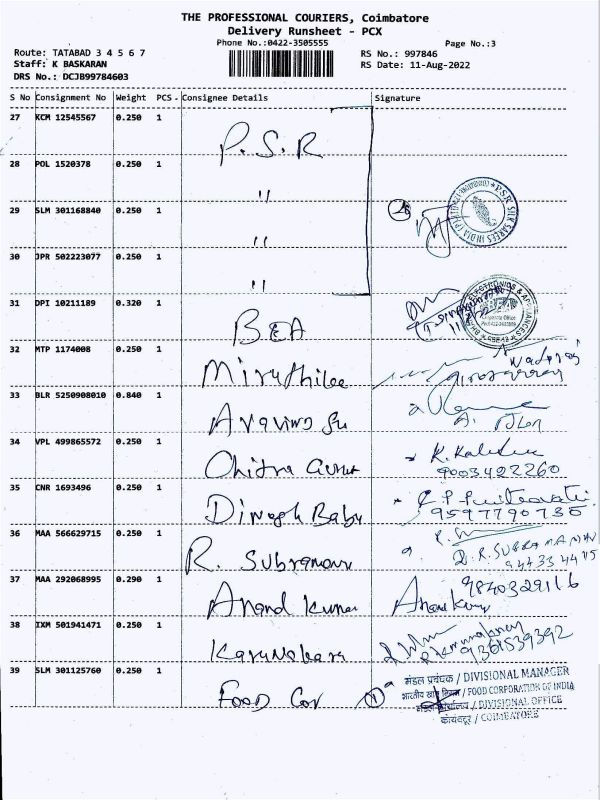 THE PROFESSIONAL COURIERS, Coimbatore
Delivery Runsheet - PCX
Phone No.:0422-3505555
Page No.:3
Route: TATABAD 3 4 5 6 7
Staff: K BASKARAN
DRS No.: DCJB99784603
RS No.: 997846
RS Date: 11-Aug-2022
S No Consignment No Weight PCS. Consignee Details Signature
27 KCM 12545567 0.250 1 P.S.R
28 POL 1520378 0.250 1 "
29 SLM 301168840 0.250 1 "
30 JPR 502223077 0.250 1 "
31 DPI 10211189 0.320 1 BEA
32 MTP 1174008 0.250 1
33 BLR 5250908010 0.840 1
34 VPL 499865572 0.250 1 Chitra
9003422260
35 CNR 1693496 0.250 1 Dinesh Babu
9597790735
36 MAA 566629715 0.250 1 R. Subramani
D.R. SUBRAMANIAN
94433 44115
37 MAA 292068995 0.290 1 Anand Kumar
9840329116
38 IXM 501941471 0.250 1 Karunakara
9361539392
39 SLM 301125760 0.250 1 FOOD Cor
मंडल प्रबंधक / DIVISIONAL MANAGER
भारतीय खाद्य निगम / FOOD CORPORATION OF INDIA
मंडल कार्यालय / DIVISIONAL OFFICE
कोयंबटूर / COIMBATORE